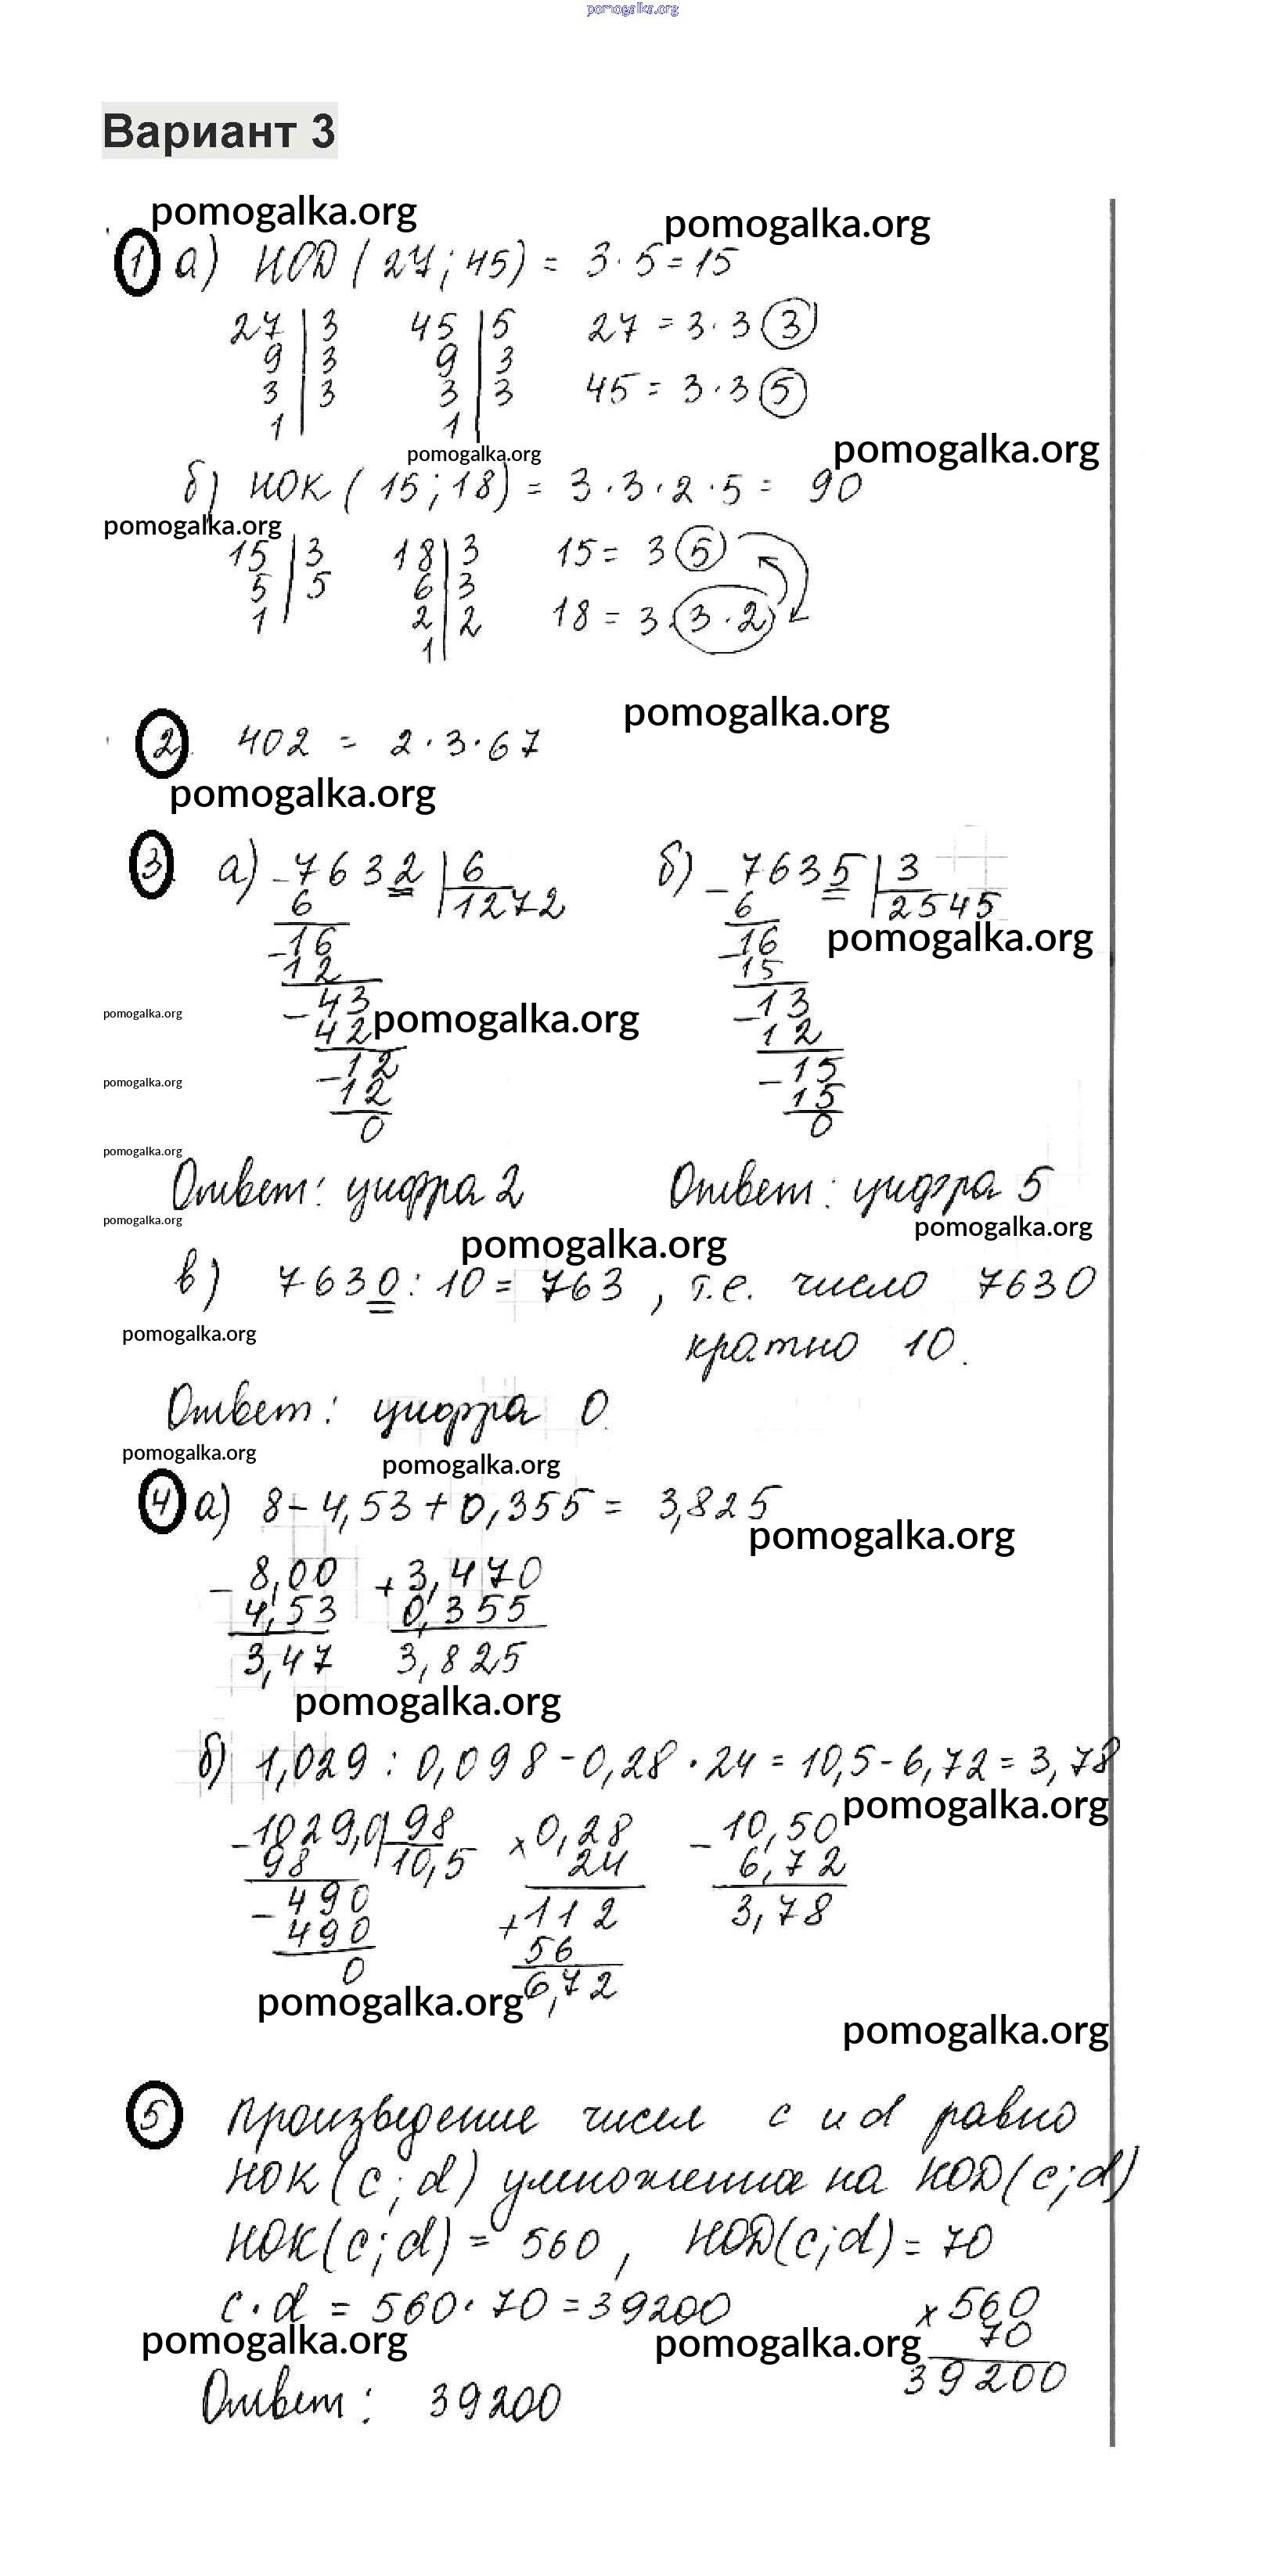 pomogalka.org
Вариант 3
pomogalka.org pomogalka.org
1 а) НОД (27; 45) = 3·5=15
27 | 3 45 | 5 27 = 3·3 3
9 | 3 9 | 3
3 | 3 3 | 3 45 = 3·3 5
1 | 1 |
pomogalka.org pomogalka.org
б) НОК (15; 18) = 3·3·2·5 = 90
pomogalka.org
15 | 3 18 | 3 15 = 3 5
5 | 5 6 | 3
1 | 2 | 2 18 = 3·3·2
1 |
pomogalka.org
2. 402 = 2·3·67
pomogalka.org
3. а) -7632 | 6 б) -7635 | 3
6 1272 6 2545
-16 -16 pomogalka.org
12 15
-43 -13
pomogalka.org 42 pomogalka.org 12
-12 -15
pomogalka.org 12 15
0 0
pomogalka.org
Ответ: цифра 2 Ответ: цифра 5
pomogalka.org pomogalka.org
pomogalka.org
в) 7630 : 10 = 763, т.е. число 7630
pomogalka.org
кратно 10.
Ответ: цифра 0.
pomogalka.org pomogalka.org
4 а) 8 - 4,53 + 0,355 = 3,825
pomogalka.org
- 8,00 + 3,470
4,53 0,355
3,47 3,825
pomogalka.org
б) 1,029 : 0,098 - 0,28 · 24 = 10,5 - 6,72 = 3,78
pomogalka.org
-1029,0 | 98 × 0,28 - 10,50
98 10,5 24 6,72
- 490 +112 3,78
490 56
0 6,72
pomogalka.org
pomogalka.org
5 Произведение чисел c и d равно
НОК (c; d) умноженна на НОД (c; d)
НОК (c; d) = 560, НОД (c; d) = 70
c·d = 560·70 = 39200 × 560
pomogalka.org pomogalka.org 70
39200
Ответ: 39200